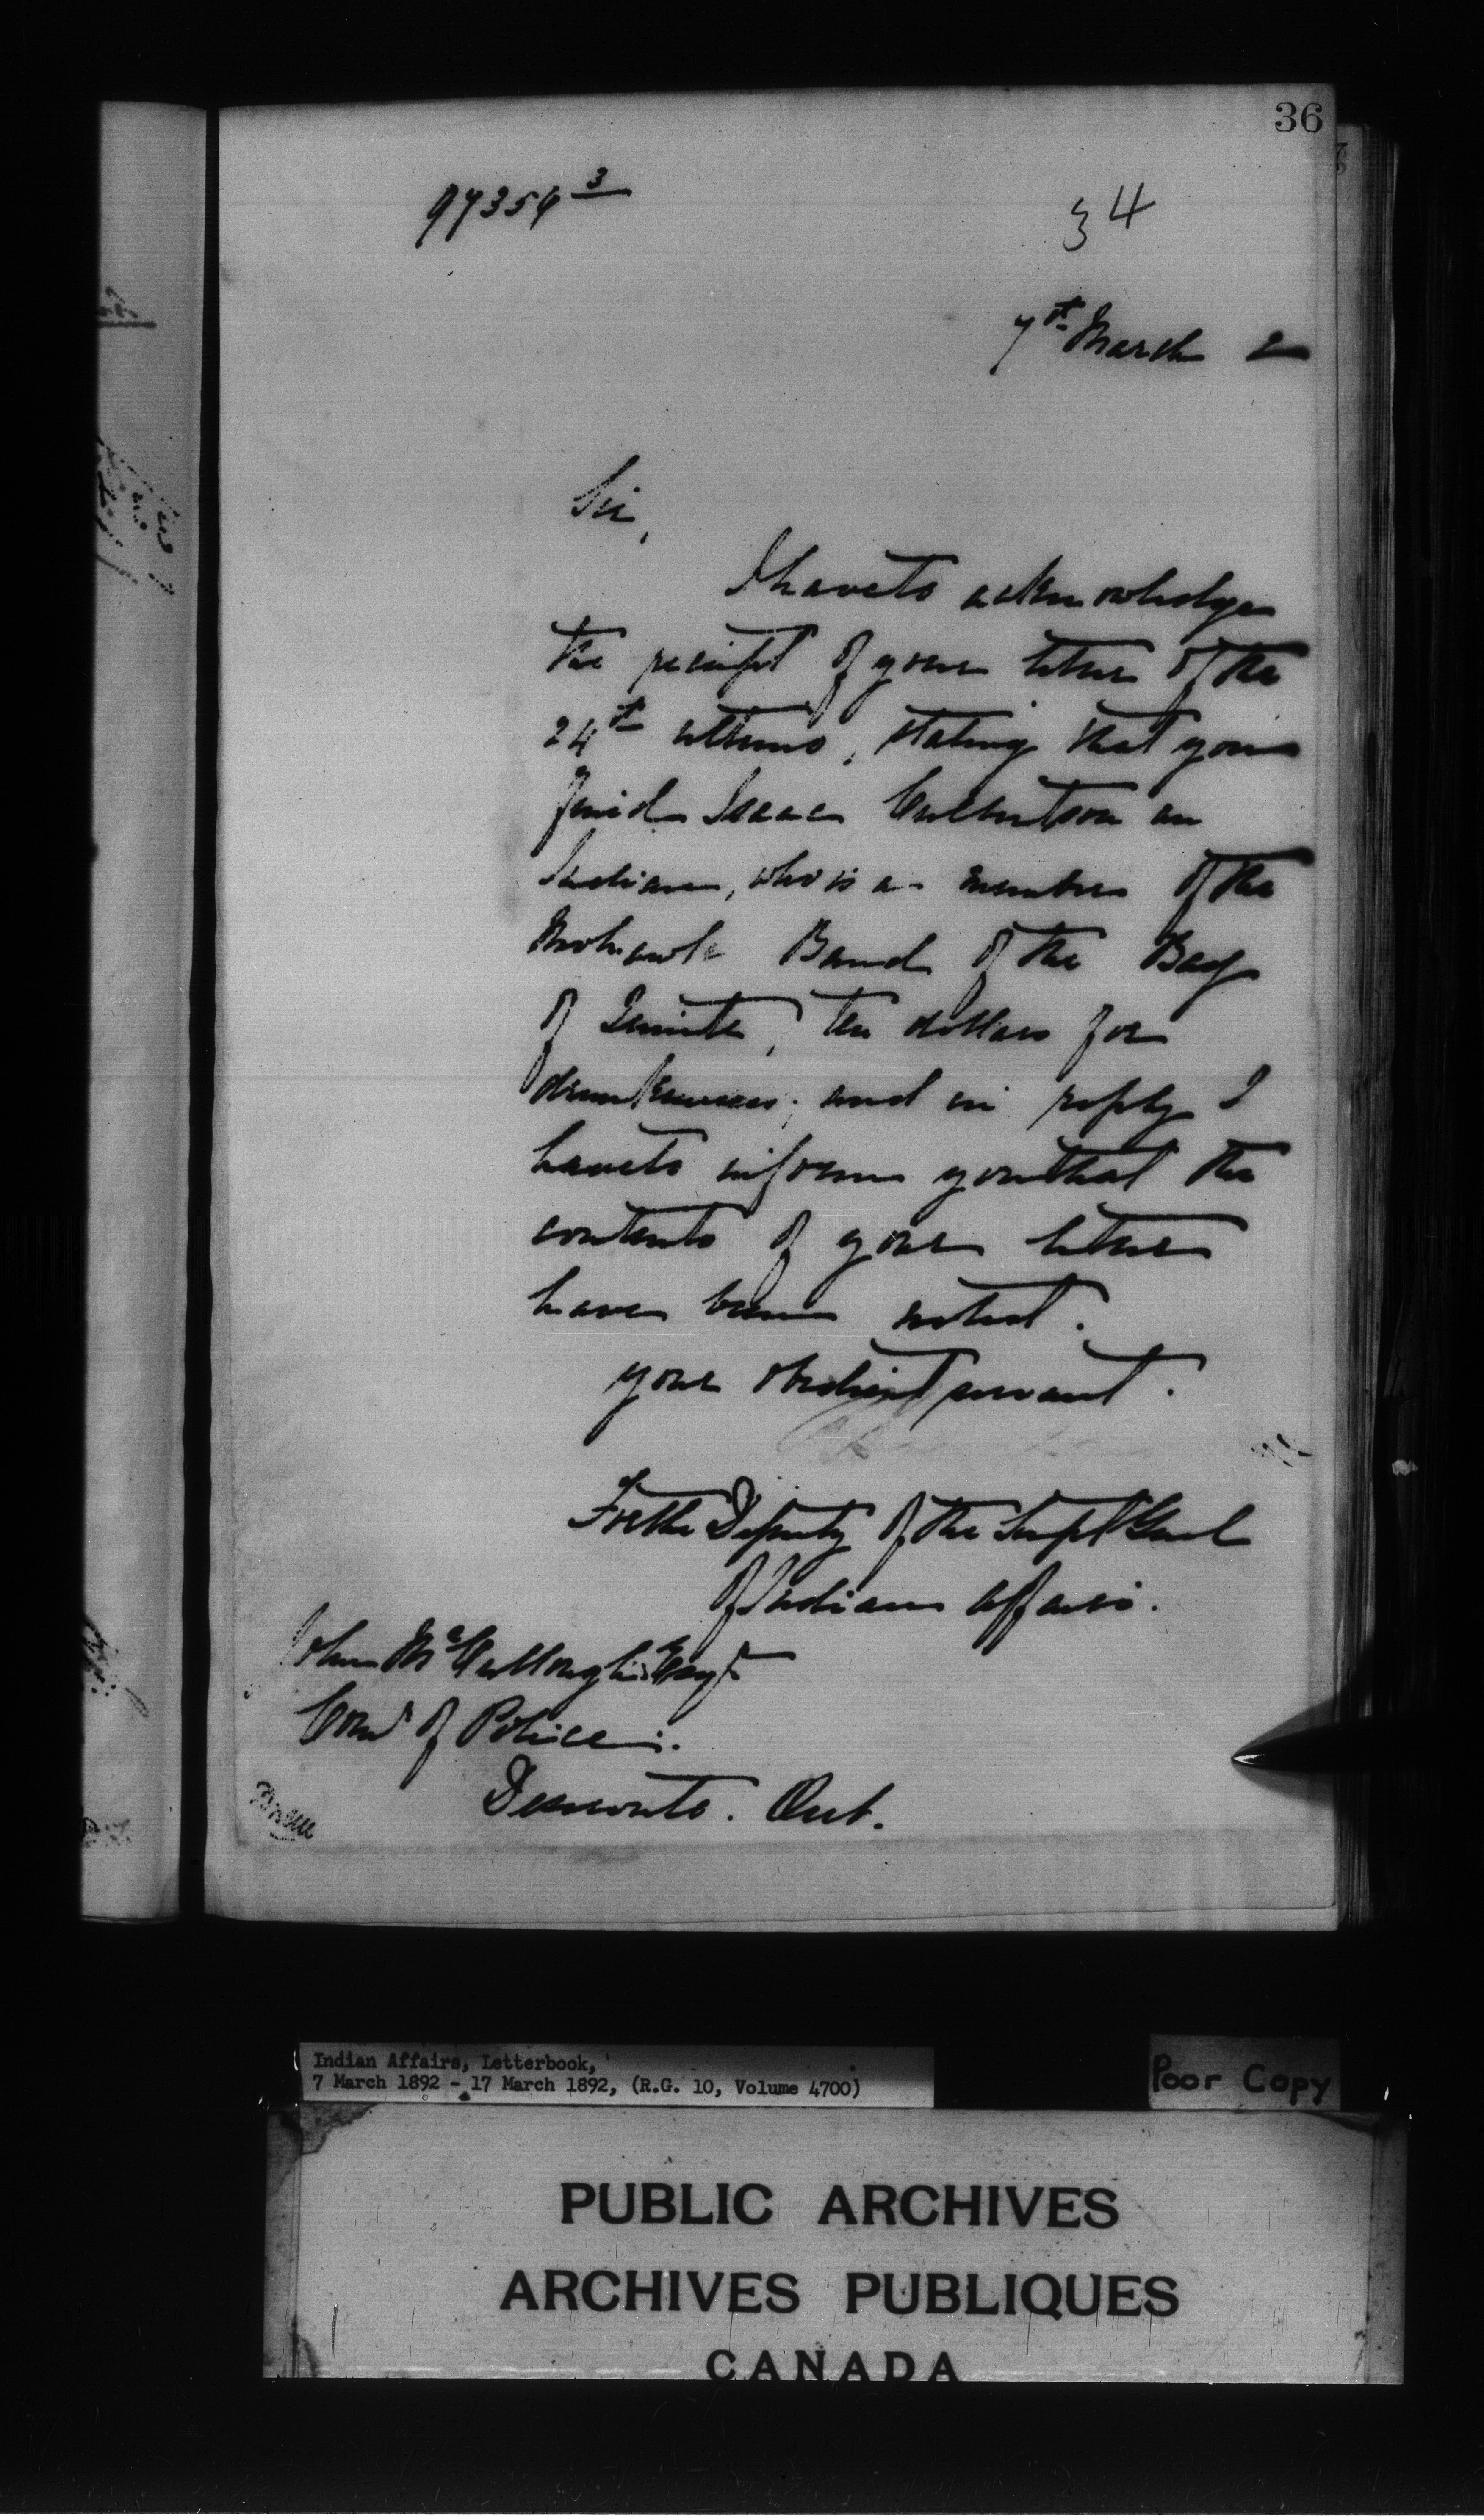 36
97356 3
34
7th March 2
Sir,
I have to acknowledge
the receipt of your letter of the
24th ultimo, stating that you
fined Isaac Culbertson an
Indian, who is a member of the
Mohawk Band of the Bay
of Quinté, ten dollars for
drunkenness; and in reply I
have to inform you that the
contents of your letter
have been noted.
Your obedient servant.
For the Deputy of the Supt Genl
of Indian Affairs.
John McCullough Esqr
Con of Police
Deseronto. Ont.
Indian Affairs, Letterbook,
7 March 1892 - 17 March 1892, (R.G. 10, Volume 4700)
Poor Copy
PUBLIC ARCHIVES
ARCHIVES PUBLIQUES
CANADA